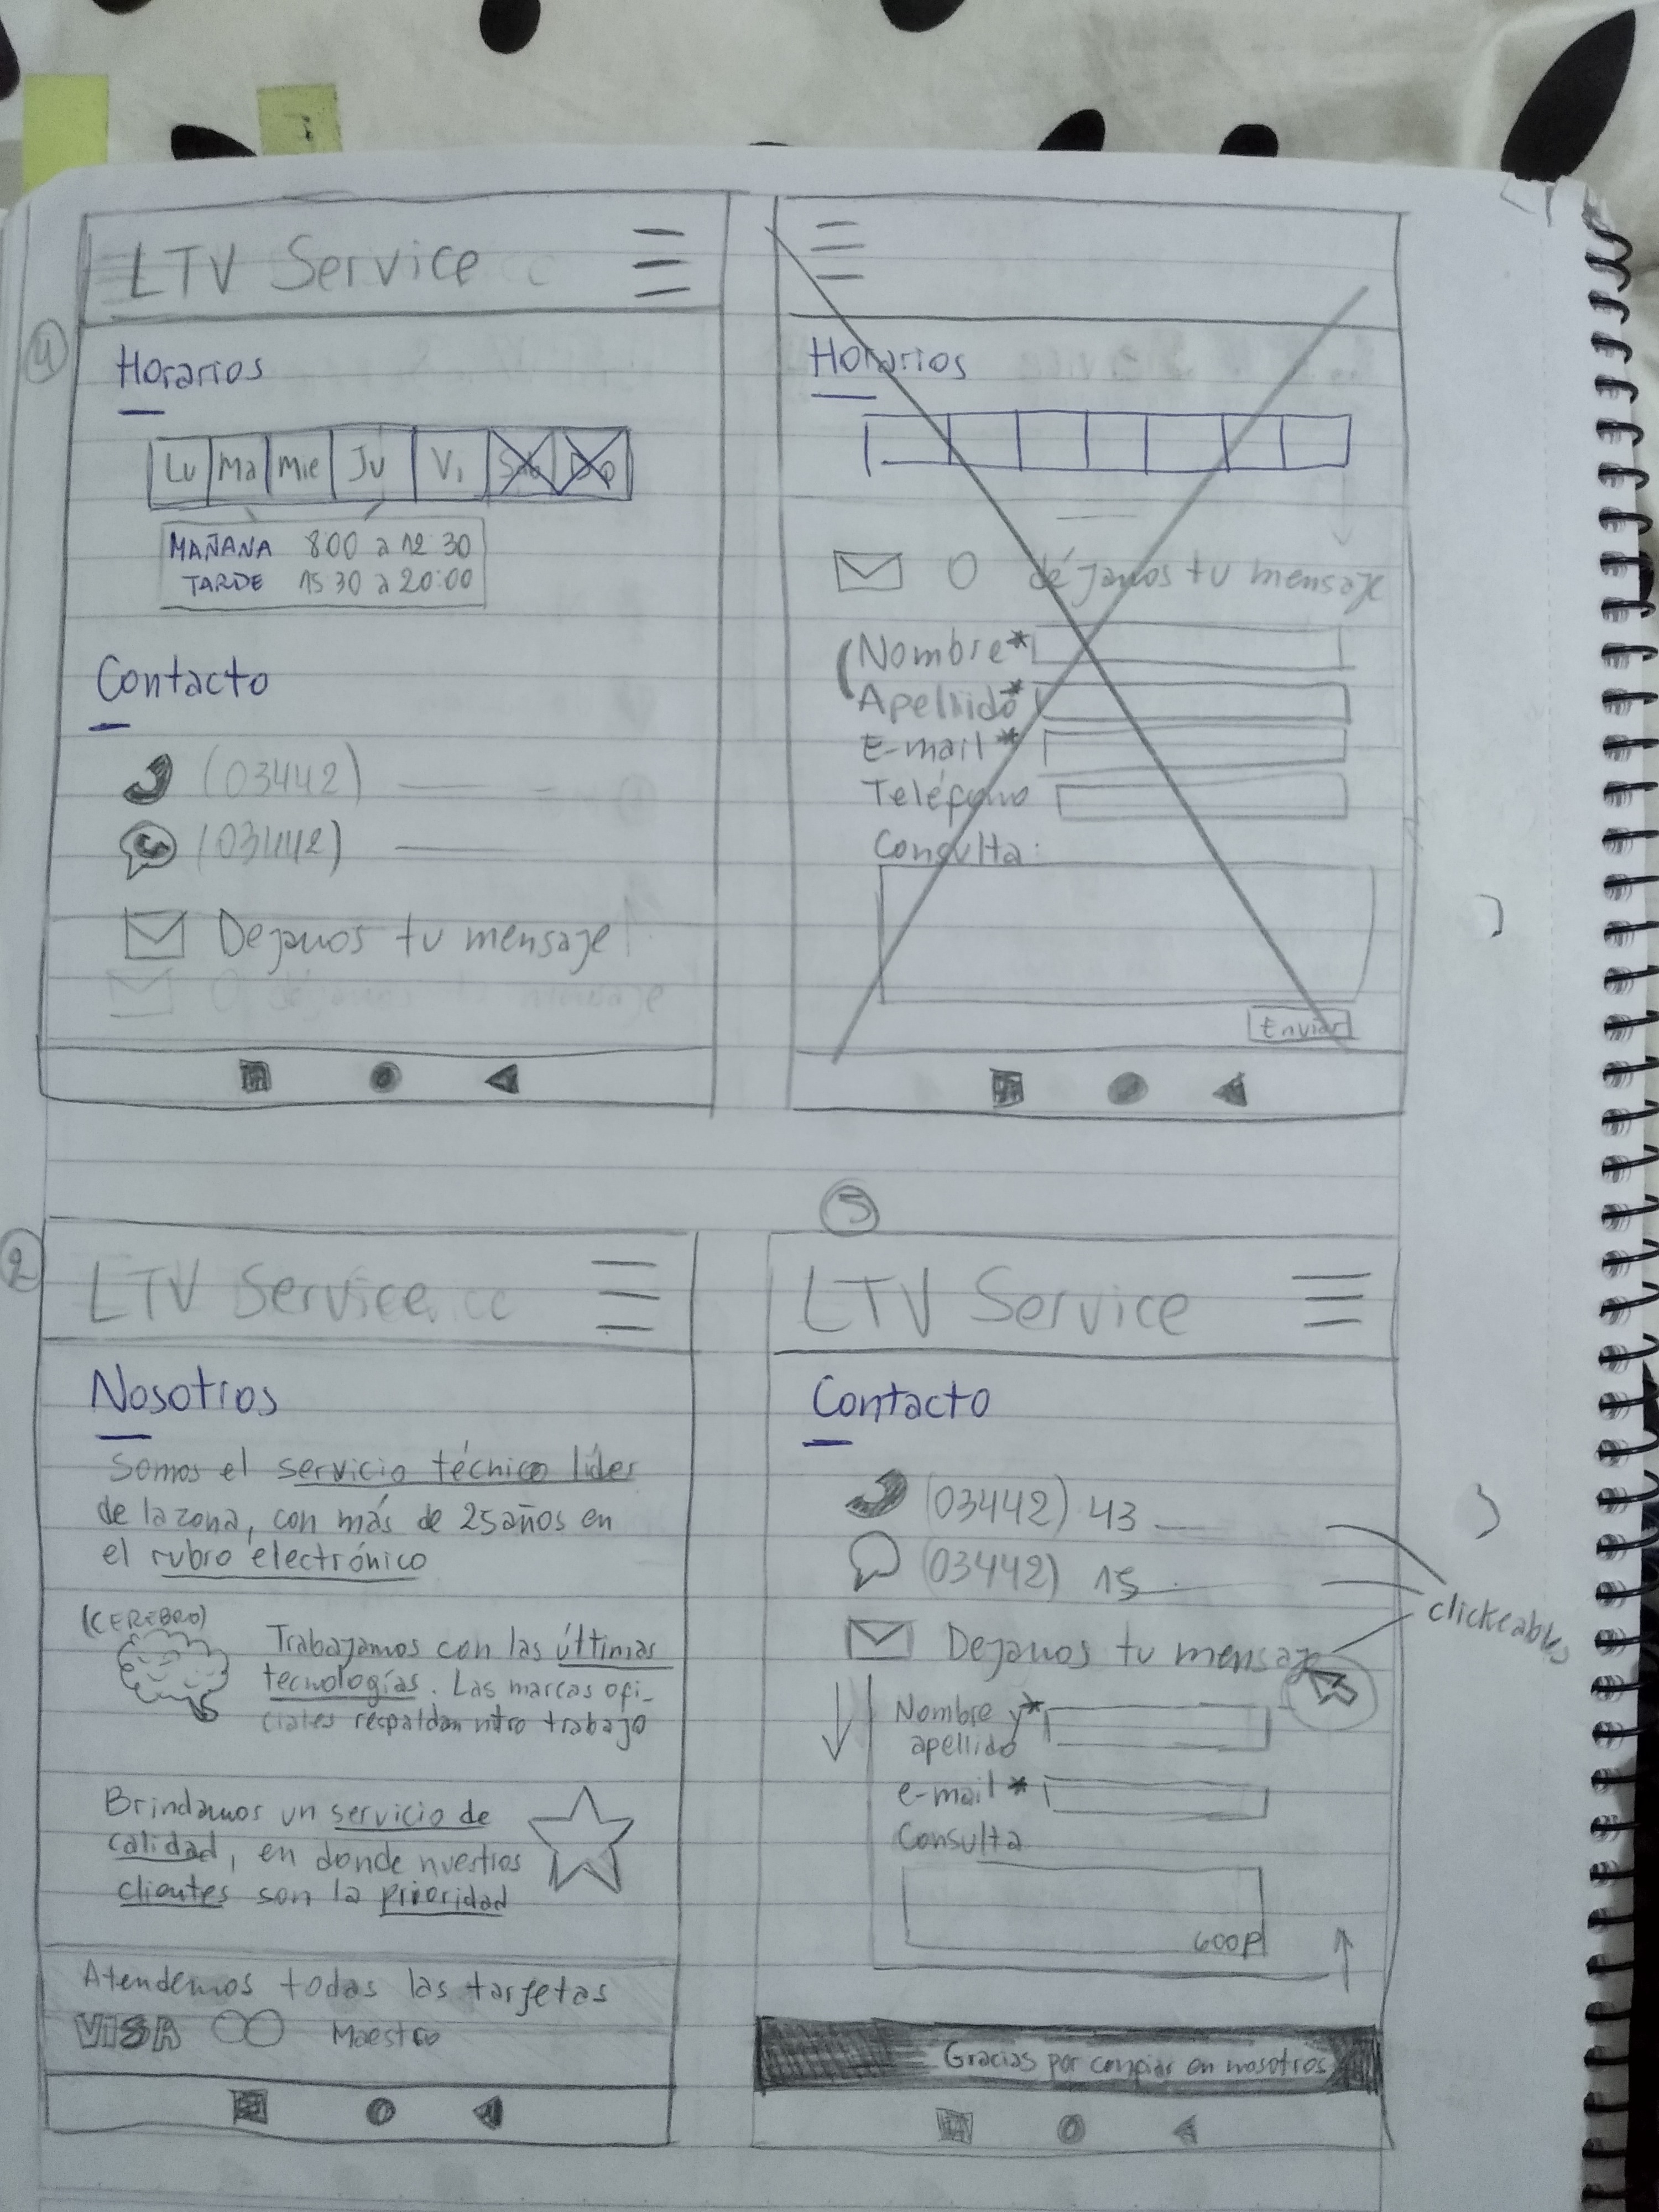 4
LTV Service
Horarios
Lu Ma Mie Ju Vi
MAÑANA 8 00 a 12 30
TARDE 15 30 a 20:00
Contacto
(03442)
(03442)
Dejanos tu mensaje
O déjanos tu mensaje
Horarios
O déjanos tu mensaje
Nombre*
Apellido*
E-mail*
Teléfono
Consulta:
Enviar
2
LTV Service
Nosotros
Somos el servicio técnico líder
de la zona, con más de 25 años en
el rubro electrónico
(CEREBRO)
Trabajamos con las últimas
tecnologías. Las marcas ofi-
ciales respaldan ntro trabajo
Brindamos un servicio de
calidad, en donde nuestros
clientes son la prioridad
Atendemos todas las tarjetas
VISA Maestro
5
LTV Service
Contacto
(03442) 43
(03442) 15
Dejanos tu mensaje
clickeables
Nombre y*
apellido
e-mail*
Consulta
600p
Gracias por confiar en nosotros